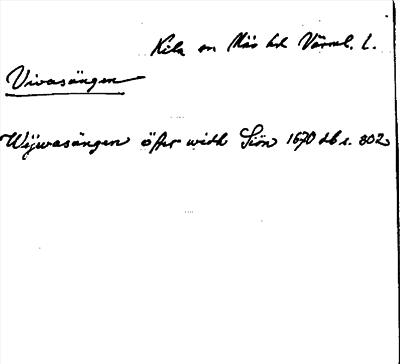 Kila sn Näs hd Värml. l.
Vivasängen
Wijwasängen öfter widh Siön 1670 db s. 302